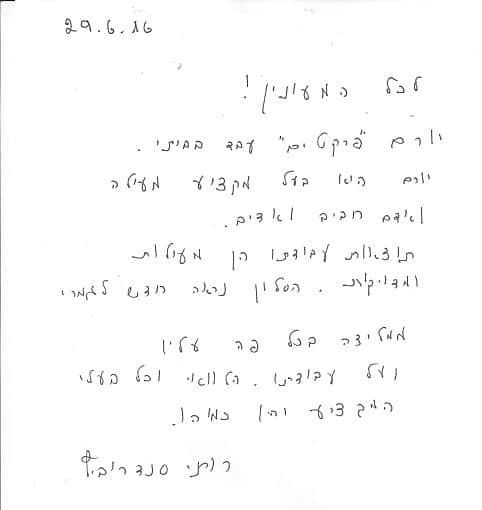 29.6.16
לכל המעונין!
יורם "פרקטים" עבד בביתי.
יורם הוא בעל מקצוע מעולה
ואדם חביב ואדיב.
תוצאות עבודתו הן מעולות
ומדויקות. הסלון נראה חדש לגמרי
ממליצה בכל פה עליו
ועל עבודתו. הלוואי וכל בעלי
המקצוע יהיו כמוהו.
רותי סנדרוביץ